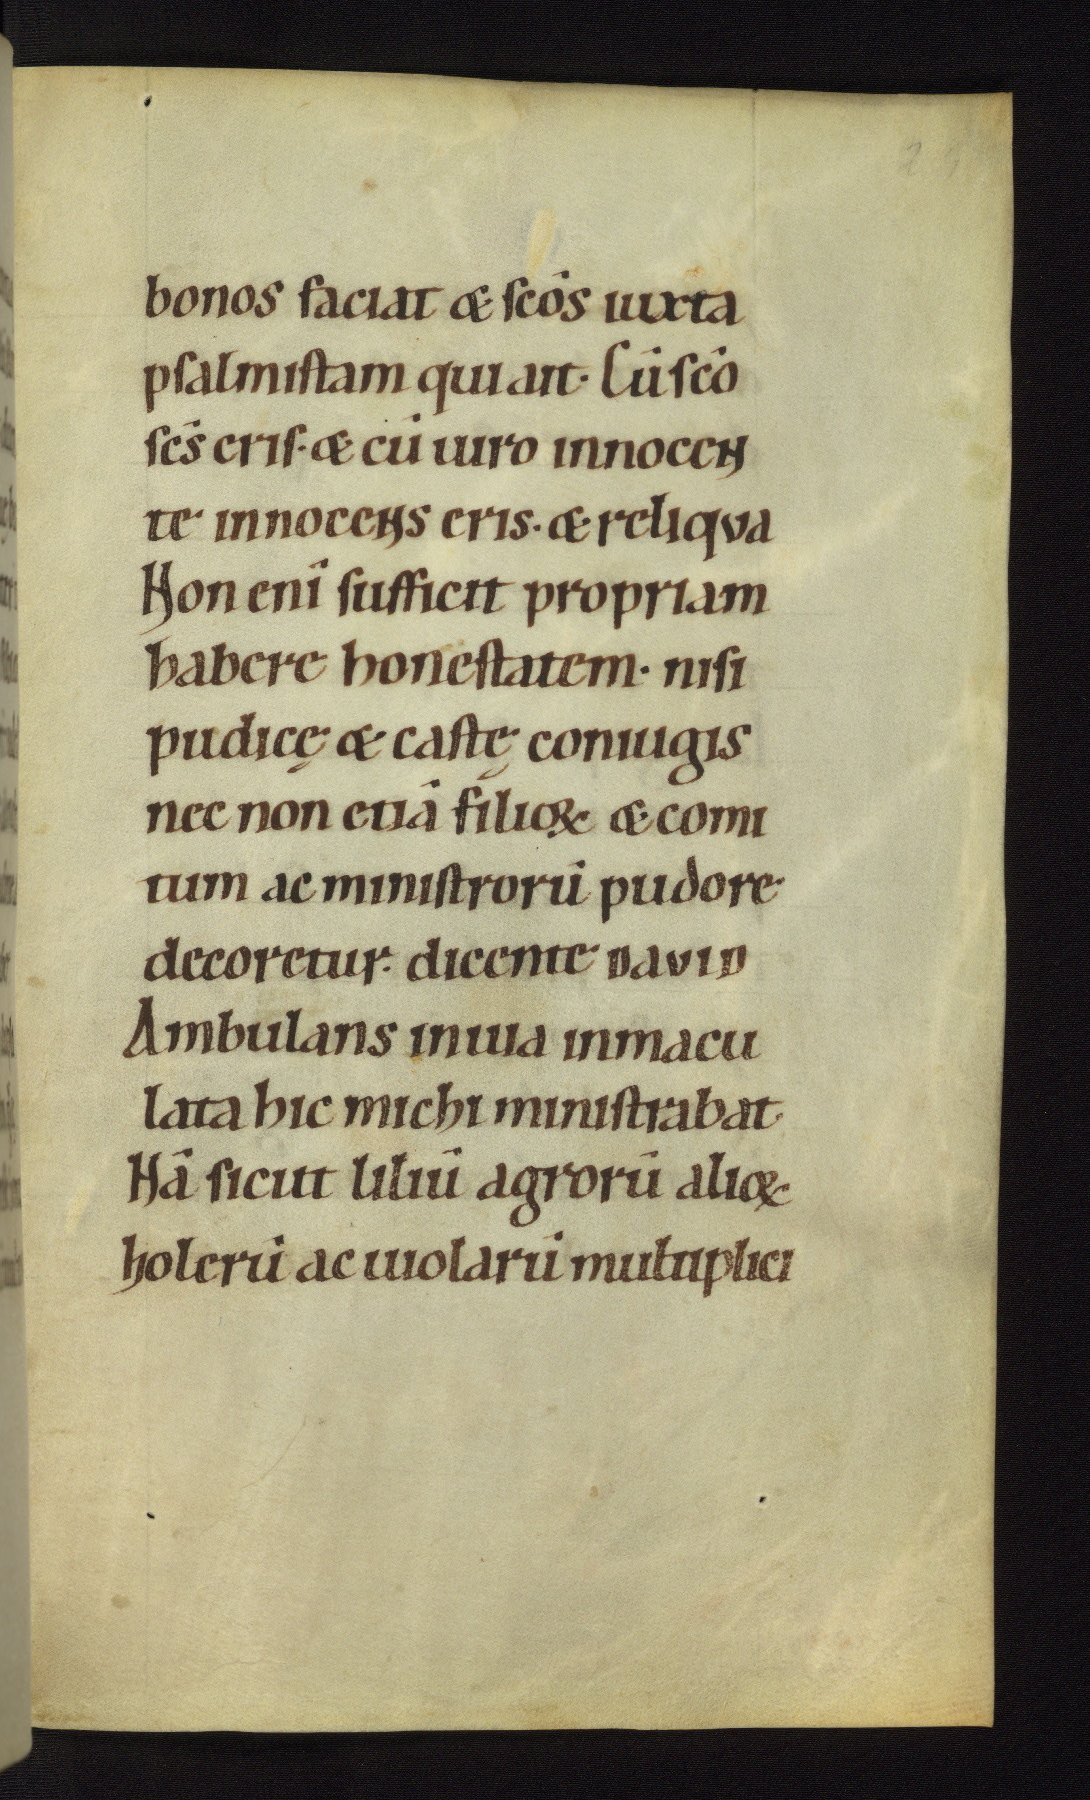 bonos faciat & sc̄os iuxta
psalmistam qui ait. Cū sc̄o
sc̄s eris. & cū uiro innocen
te innocens eris. & reliqua
Non enī sufficit propriam
habere honestatem. nisi
pudicę & castę coniugis
nec non etiā filioꝝ & comi
tum ac ministrorū pudore
decoretur. dicente DAVID
Ambulans in uia inmacu
lata hic michi ministrabat.
Nā sicut liliū agrorū alioꝝ
holerū ac uiolarū multiplici